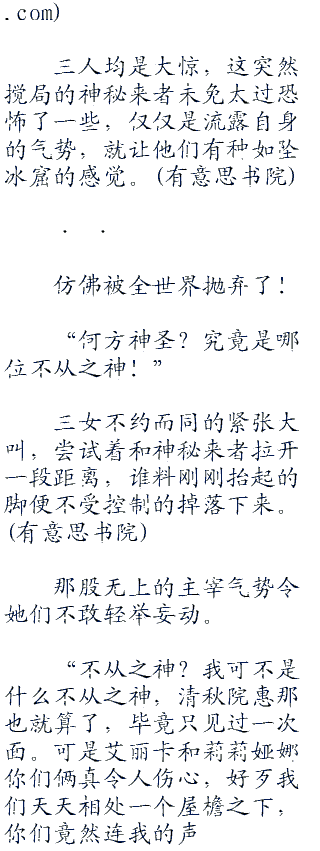 .com)
三人均是大惊，这突然
搅局的神秘来者未免太过恐
怖了一些，仅仅是流露自身
的气势，就让他们有种如坠
冰窟的感觉。(有意思书院)
. .
仿佛被全世界抛弃了！
“何方神圣？究竟是哪
位不从之神！”
三女不约而同的紧张大
叫，尝试着和神秘来者拉开
一段距离，谁料刚刚抬起的
脚便不受控制的掉落下来。
(有意思书院)
那股无上的主宰气势令
她们不敢轻举妄动。
“不从之神？我可不是
什么不从之神，清秋院惠那
也就算了，毕竟只见过一次
面。可是艾丽卡和莉莉娅娜
你们俩真令人伤心，好歹我
们天天相处一个屋檐之下，
你们竟然连我的声